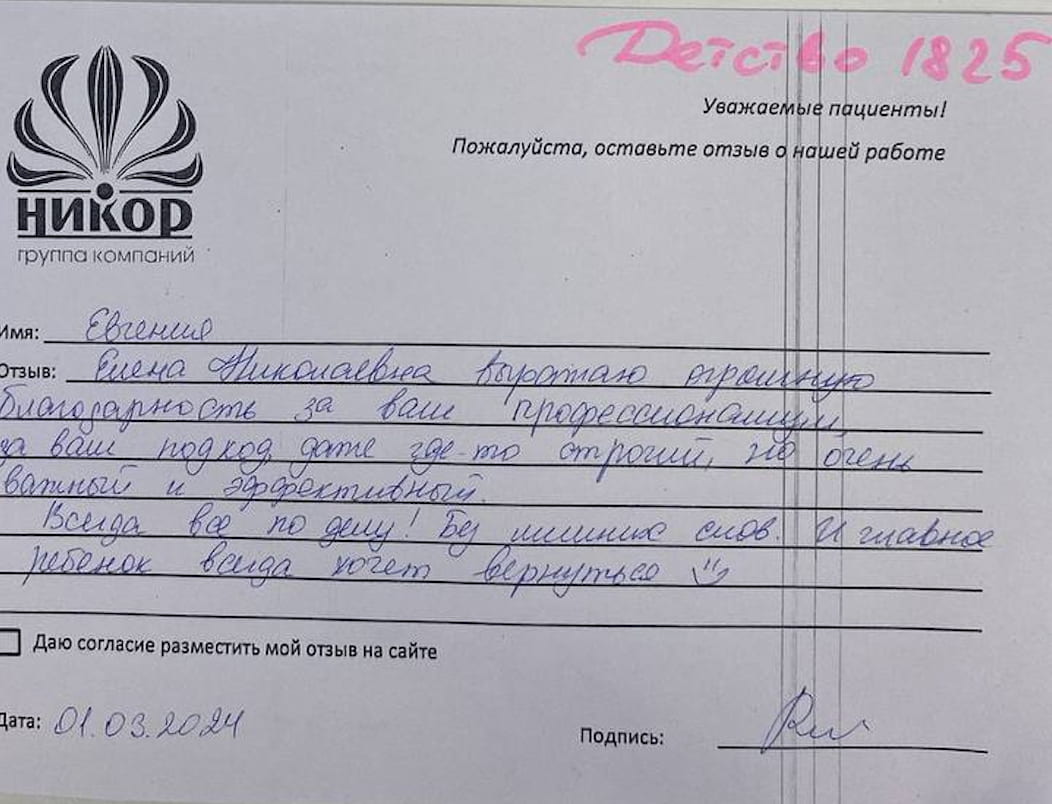 Детство 1825
Уважаемые пациенты!
Пожалуйста, оставьте отзыв о нашей работе
НИКОР
группа компаний
Имя: Евгения
Отзыв: Елена Николаевна выражаю огромную
благодарность за ваш профессионализм,
за ваш подход, даже где-то строгий, но очень
важный и эффективный.
Всегда все по делу! Без лишних слов. И главное
ребенок всегда хочет вернуться
Даю согласие разместить мой отзыв на сайте
Дата: 01.03.2024
Подпись: